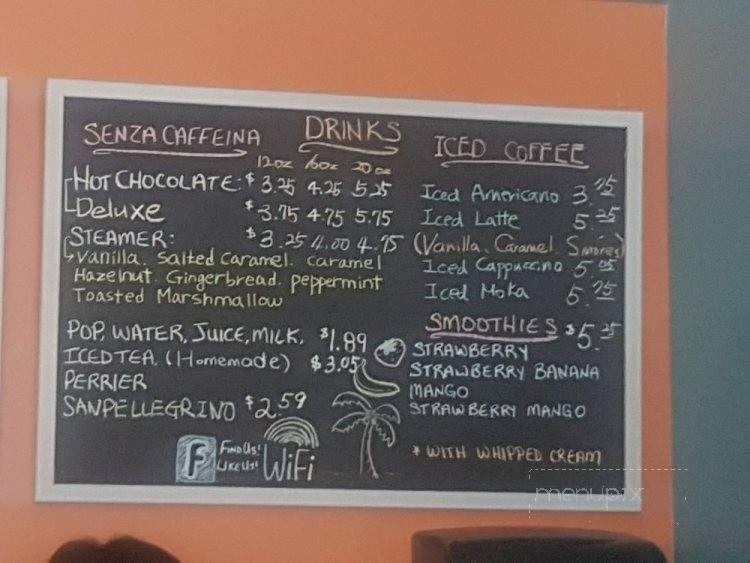 DRINKS
SENZA CAFFEINA
12oz 16oz 20oz
HOT CHOCOLATE: $ 3.25 4.25 5.25
Deluxe $ 3.75 4.75 5.75
STEAMER: $ 3.25 4.00 4.75
Vanilla. Salted Caramel. Caramel
Hazelnut. Gingerbread. peppermint
Toasted Marshmallow
POP, WATER, JUICE, MILK, $1.89
ICED TEA. (Homemade) $3.05
PERRIER
SANPELLEGRINO $2.59
F FIND US! LIKE US! WiFi
ICED COFFEE
Iced Americano 3.75
Iced Latte 5.25
(Vanilla. Caramel. Smores)
Iced Cappuccino 5.05
Iced Moka 5.75
SMOOTHIES $5.25
STRAWBERRY
STRAWBERRY BANANA
MANGO
STRAWBERRY MANGO
* WITH WHIPPED CREAM
menupix